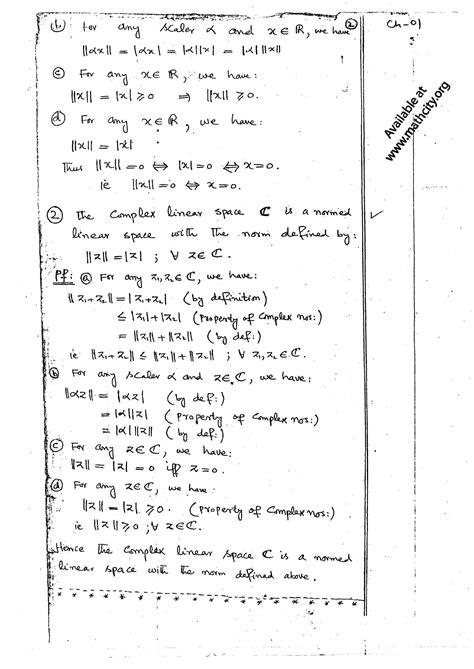 (b) For any scaler α and x ∈ ℝ, we have
||αx|| = |αx| = |α||x| = |α| ||x||
(c) For any x ∈ ℝ, we have:
||x|| = |x| ⩾ 0 ⇒ ||x|| ⩾ 0.
(d) For any x ∈ ℝ, we have:
||x|| = |x|
Thus ||x|| = 0 ⇔ |x| = 0 ⇔ x = 0.
ie ||x|| = 0 ⇔ x = 0.
(2) The Complex linear space ℂ is a normed
linear space with the norm defined by:
||z|| = |z| ; ∀ z ∈ ℂ.
Pf: (a) For any z₁, z₂ ∈ ℂ, we have:
||z₁+z₂|| = |z₁+z₂| (by definition)
≤ |z₁| + |z₂| (Property of Complex nos:)
= ||z₁|| + ||z₂|| (by def:)
ie ||z₁+z₂|| ≤ ||z₁|| + ||z₂|| ; ∀ z₁, z₂ ∈ ℂ.
(b) For any scaler α and z ∈ ℂ, we have:
||αz|| = |αz| (by def:)
= |α||z| (Property of Complex nos:)
= |α| ||z|| (by def:)
(c) For any z ∈ ℂ, we have:
||z|| = |z| = 0 iff z = 0.
(d) For any z ∈ ℂ, we have
||z|| = |z| ⩾ 0. (Property of Complex nos:)
ie ||z|| ⩾ 0 ; ∀ z ∈ ℂ.
Hence the Complex linear space ℂ is a normed
linear space with the norm defined above.
(2)
Ch-01
Available at
www.mathcity.org